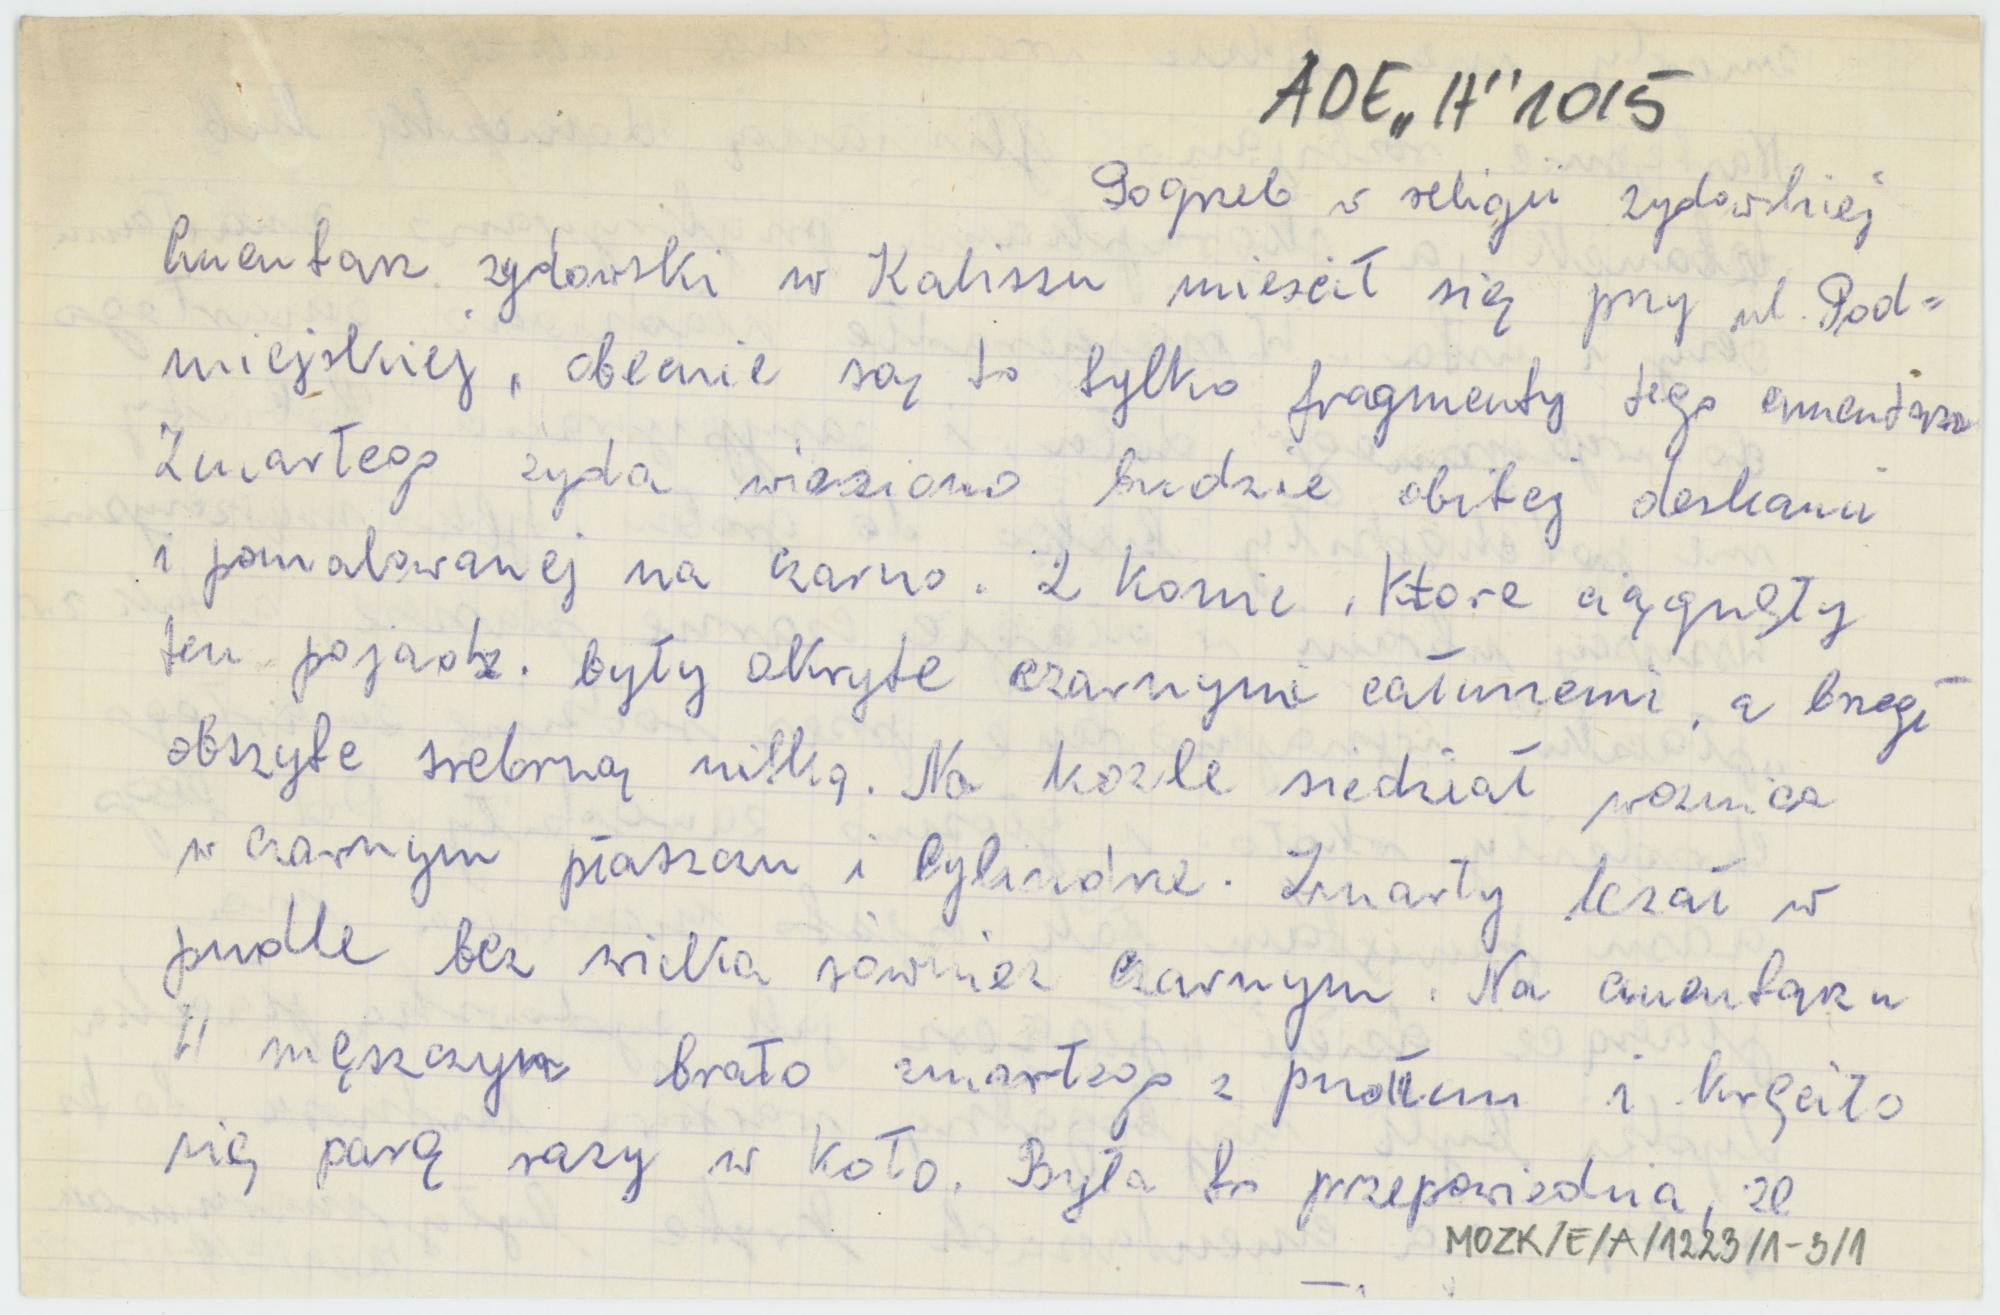 ADE „H" 1015
Pogrzeb w religii zydowskiej
Cmentarz zydowski w Kaliszu mieścił się przy ul. Pod=
miejskiej, obecnie są to tylko fragmenty tego cmentarza
Zmarłego zyda wieziono budzie obitej deskami
i pomalowanej na czarno. 2 konie, które ciągnęły
ten pojazd. były okryte czarnymi całunemi, a brzegi
obszyte srebrną nitką. Na kozle siedział woznica
w czarnym płaszczu i Cylindrze. Zmarły lezał w
pudle bez wieka rowniez czarnym. Na cmentarzu
męszczyzn brało zmarłego z pudłem i kręciło
się parę razy w koło. Była to przepowiednia, ze
MOZK/E/A/1223/1-3/1